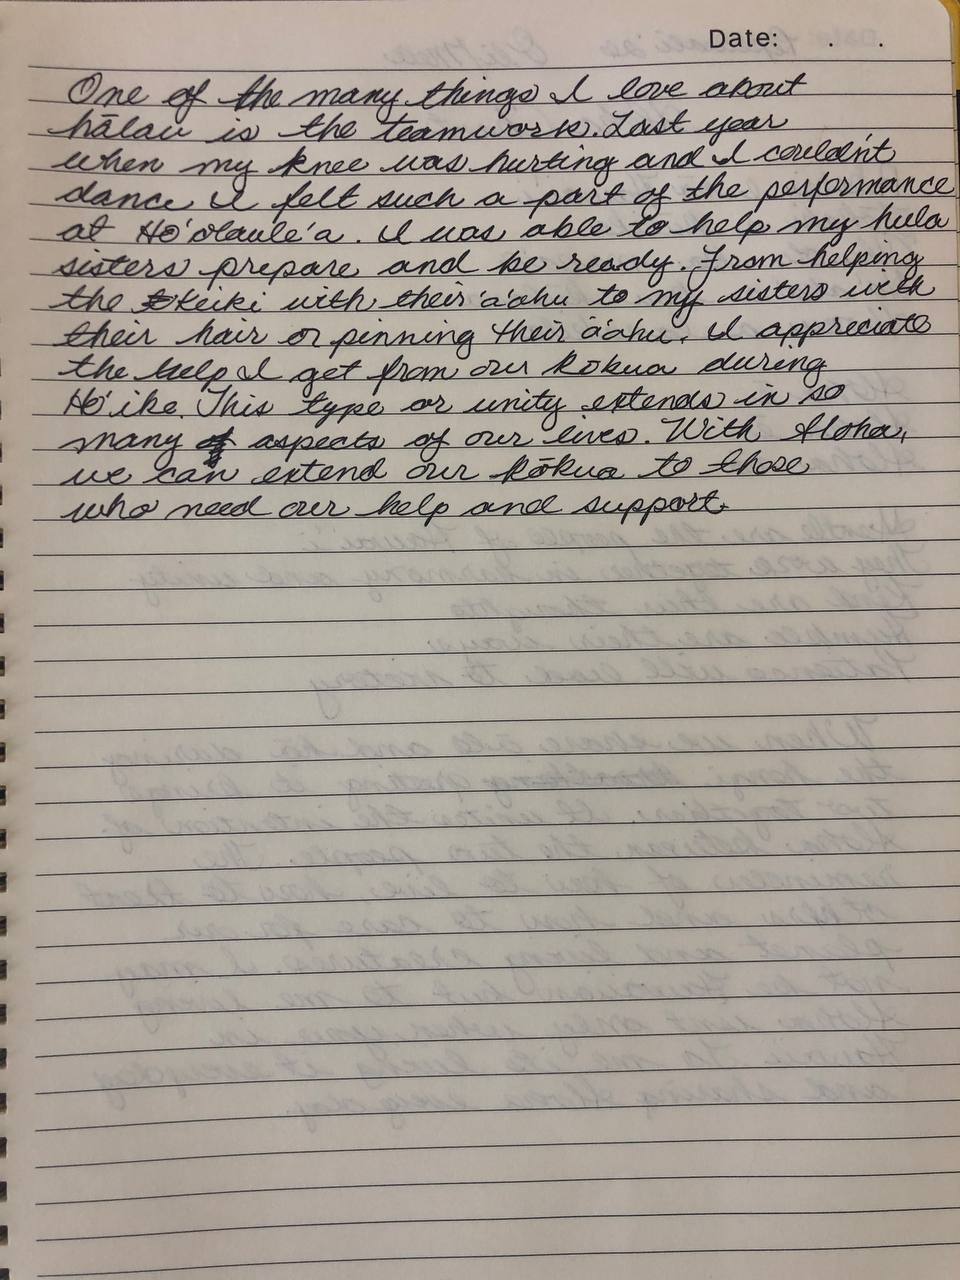 Date: . .
One of the many things I love about
hālau is the teamwork. Last year
when my knee was hurting and I couldn't
dance I felt such a part of the performance
at Ho'olaule'a. I was able to help my hula
sisters prepare and be ready. From helping
the keiki with their a'ahu to my sisters with
their hair or pinning their a'ahu. I appreciate
the help I get from our kokua during
Hō'ike. This type or unity extends in so
many aspects of our lives. With Aloha,
we can extend our kōkua to those
who need our help and support.